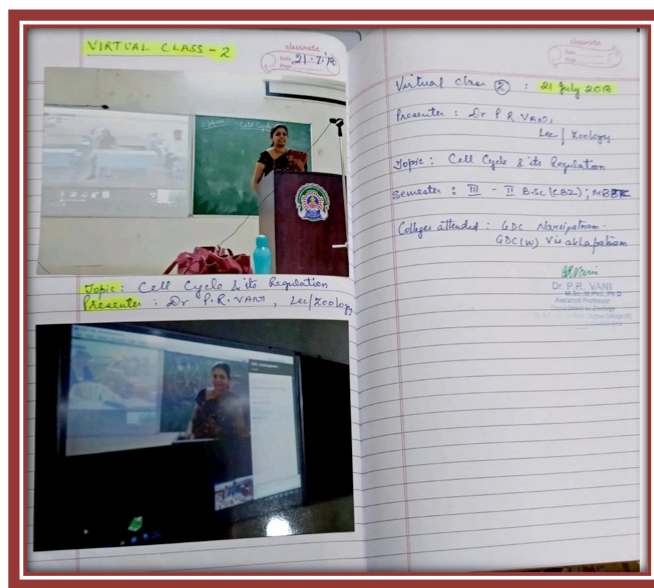 VIRTUAL CLASS - 2
classmate
Date 21.7.18
Page
Cell Cycle
Topic: Cell Cycle & its Regulation
Presenter: Dr P.R. VANI, Lec/Zoology
classmate
Date
Page
Virtual class ② : 21 July 2018
Presenter : Dr P R VANI,
Lec/Zoology.
Topic : Cell Cycle & its Regulation
Semester : III - II B.Sc (CBZ);
Colleges attended : GDC Narsipatnam.
GDC(W) Visakhapatnam
Dr. P.R. VANI
M.Sc., M.Phil., Ph.D
Assistant Professor
Department of Zoology